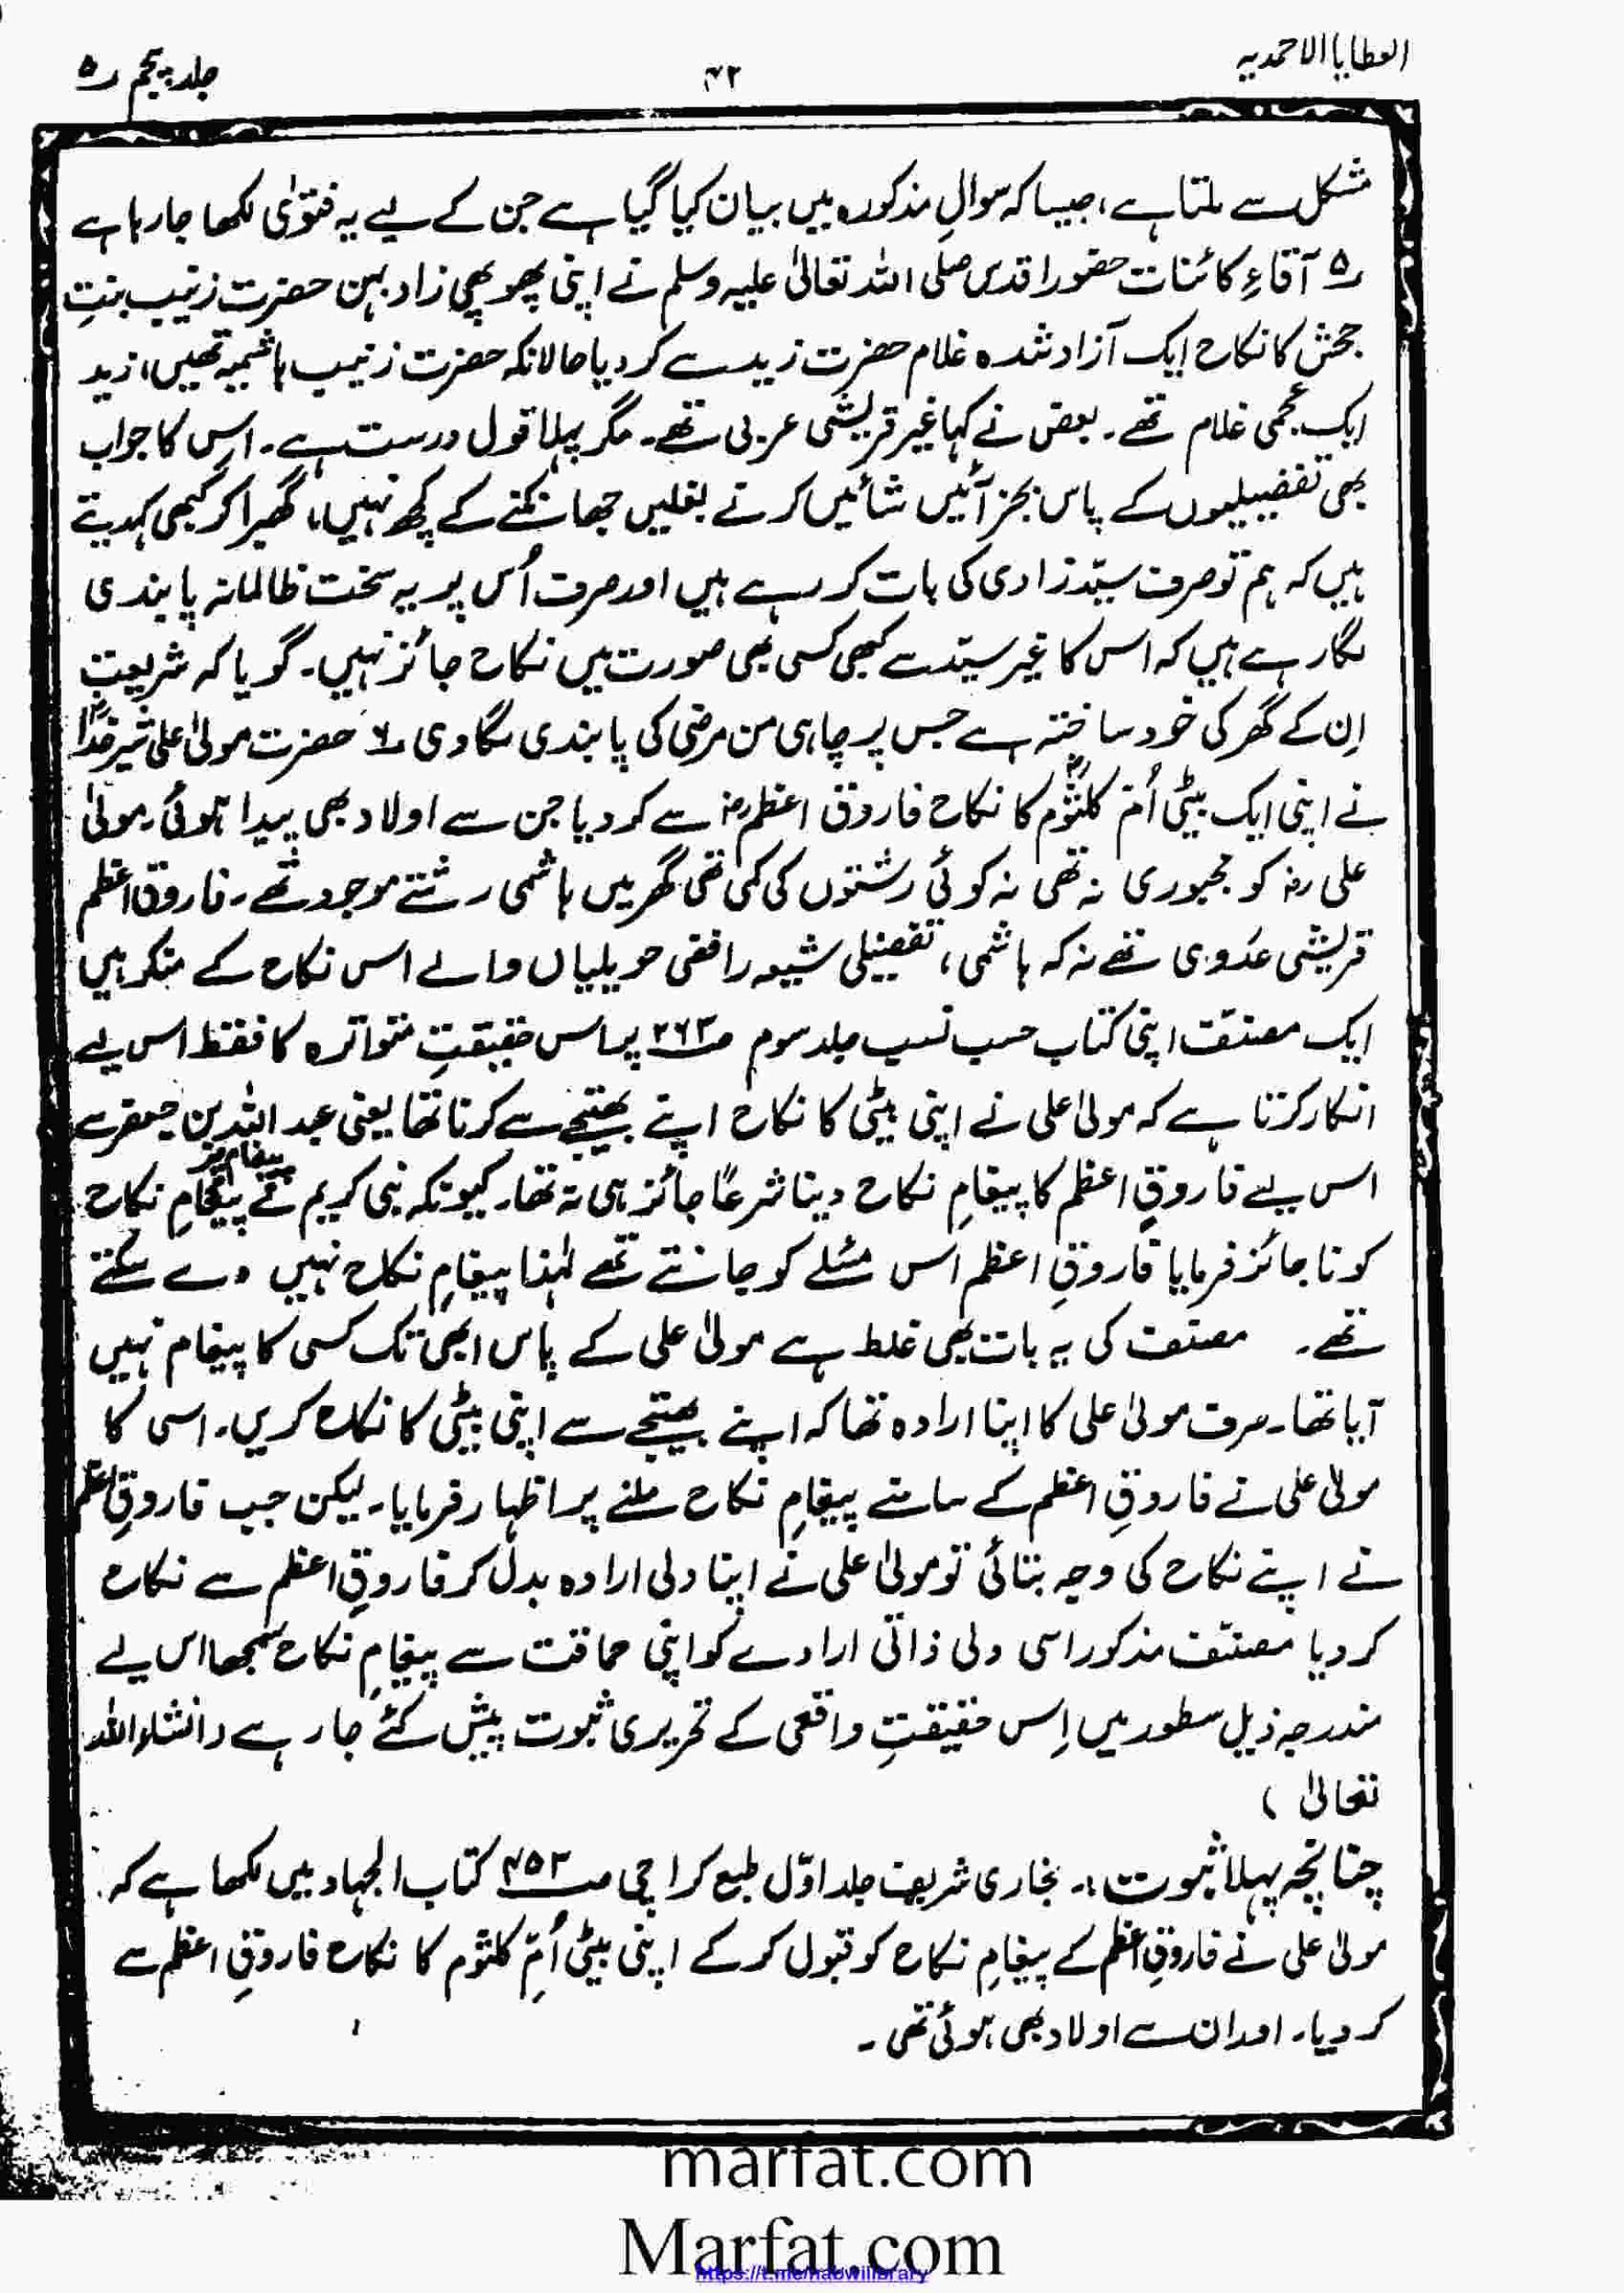 العطایا الاحمدیہ
۴۲
جلد پنجم ۵
مشکل سے ملتا ہے، جیسا کہ سوالِ مذکورہ میں بیان کیا گیا ہے جن کے لیے یہ فتوٰی لکھا جا رہا ہے
۵ آقاءِ کائنات حضور اقدس صلی اللہ تعالیٰ علیہ وسلم نے اپنی پھوپھی زاد بہن حضرت زینب بنتِ
جحش کا نکاح ایک آزاد شدہ غلام حضرت زید سے کر دیا حالانکہ حضرت زینب ہاشمیہ تھیں، زید
ایک عجمی غلام تھے۔ بعض نے کہا غیر قریشی عربی تھے۔ مگر پہلا قول درست ہے۔ اس کا جواب
بھی تفضیلیوں کے پاس بجز آئیں شائیں کرنے بغلیں جھانکنے کے کچھ نہیں، گھبرا کر کبھی کہدیتے
ہیں کہ ہم تو صرف سیّد زادی کی بات کر رہے ہیں اور صرف اُس پر یہ سخت ظالمانہ پابندی
لگا رہے ہیں کہ اس کا غیر سیّد سے کبھی کسی بھی صورت میں نکاح جائز نہیں۔ گویا کہ شریعت
اِن کے گھر کی خود ساختہ ہے جس پر چاہی من مرضی کی پابندی لگا دی ۶ حضرت مولیٰ علی شیر خدا
نے اپنی ایک بیٹی اُم کلثوم کا نکاح فاروق اعظم رضہ سے کر دیا جن سے اولاد بھی پیدا ہوئی۔ مولیٰ
علی رضہ کو مجبوری نہ تھی نہ کوئی رشتوں کی کمی تھی گھر میں ہاشمی رشتے موجود تھے۔ فاروق اعظم
قریشی عدوی تھے نہ کہ ہاشمی، تفضیلی شیعہ رافضی حویلیاں والے اس نکاح کے منکر ہیں
ایک مصنف اپنی کتاب حسب نسب جلد سوم صـ۲۶۳ پر اس حقیقتِ متواترہ کا فقط اس لیے
انکار کرتا ہے کہ مولیٰ علی نے اپنی بیٹی کا نکاح اپنے بھتیجے سے کرنا تھا یعنی عبد اللہ بن جعفر سے
اس لیے فاروقِ اعظم کا پیغامِ نکاح دینا شرعًا جائز ہی نہ تھا۔ کیونکہ نبی کریم نے پیغام پر پیغامِ نکاح
کو ناجائز فرمایا فاروقِ اعظم اس مسئلے کو جانتے تھے لہٰذا پیغامِ نکاح نہیں دے سکتے
تھے۔ مصنف کی یہ بات بھی غلط ہے مولیٰ علی کے پاس ابھی تک کسی کا پیغام نہیں
آیا تھا۔ صرف مولیٰ علی کا اپنا ارادہ تھا کہ اپنے بھتیجے سے اپنی بیٹی کا نکاح کریں۔ اسی کا
مولیٰ علی نے فاروقِ اعظم کے سامنے پیغامِ نکاح ملنے پر اظہار فرمایا۔ لیکن جب فاروقِ اعظم
نے اپنے نکاح کی وجہ بتائی تو مولیٰ علی نے اپنا دلی ارادہ بدل کر فاروقِ اعظم سے نکاح
کر دیا مصنّف مذکور اسی دلی ذاتی ارادے کو اپنی حماقت سے پیغامِ نکاح سمجھا اس لیے
مندرجہ ذیل سطور میں اِس حقیقتِ واقعی کے تحریری ثبوت پیش کئے جا رہے (انشاء اللہ
تعالیٰ )
چنانچہ پہلا ثبوت :۔ بخاری شریف جلد اوّل طبع کراچی صـ۴۵۳ کتاب الجہاد میں لکھا ہے کہ
مولیٰ علی نے فاروقِ اعظم کے پیغامِ نکاح کو قبول کر کے اپنی بیٹی اُمِّ کلثوم کا نکاح فاروقِ اعظم سے
کر دیا۔ اور ان سے اولاد بھی ہوئی تھی۔
marfat.com
Marfat.com
https://t.me/nabwilibrary